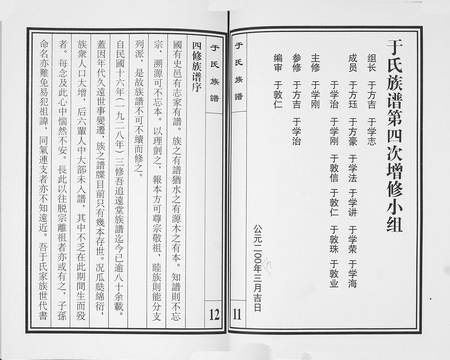 于氏族谱第四次增修小组
组长 于方吉 于学志
成员 于方珏 于方豪 于学法 于学讲 于学荣 于学海
于学治 于学刚 于敦信 于敦仁 于敦珠 于敦业
主修 于学刚
参修 于方吉 于学治
编审 于敦仁
公元二00年三月吉日
于氏族譜
11
于氏族譜
12
四修族谱序
國有史邑有志家有譜。族之有譜猶水之有源木之有本。知譜則不忘
宗，溯源可不忘本。以理剴之，報本方可尊宗敬祖，睦族則能分支
列派，是故族譜不可不續而修之。
自民國十六年(一九二八年)三修吾追遠堂族譜迄今已逾八十余載。
蓋因年代久遠世事變遷，族之譜牒目前只有幾本存世。况瓜瓞綿衍，
族衆人口大增，后六輩人中大部未入譜，其中不乏在此期間生而殁
者。每念及此心中惴然不安。長此以往脱宗離祖者亦或有之，子孫
命名亦難免易犯祖諱，同氣連支者亦不知遠近。吾于氏家族世代書